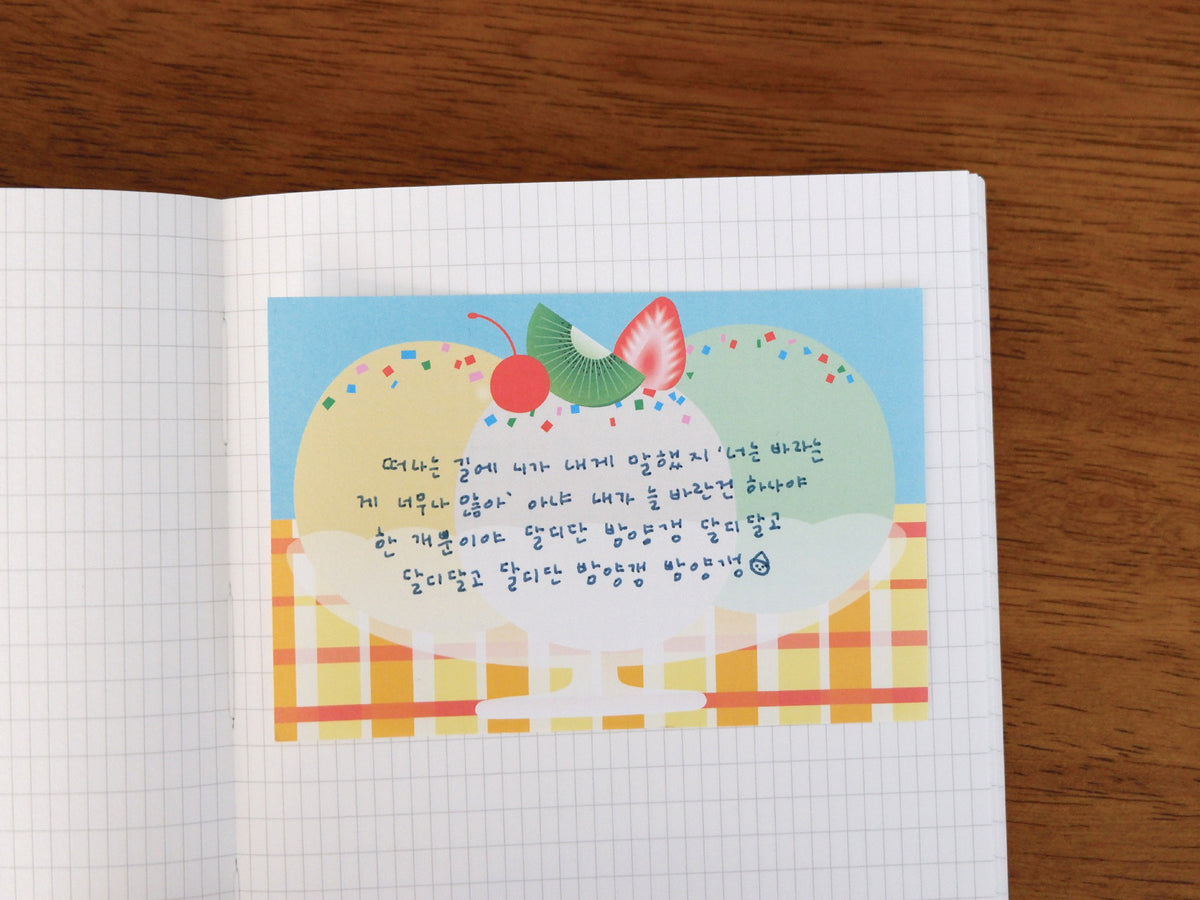 떠나는 길에 니가 내게 말했지 '너는 바라는
게 너무나 많아' 아냐 내가 늘 바란건 하나야
한 개뿐이야 달디단 밤양갱 달디달고
달디달고 달디단 밤양갱 밤양갱